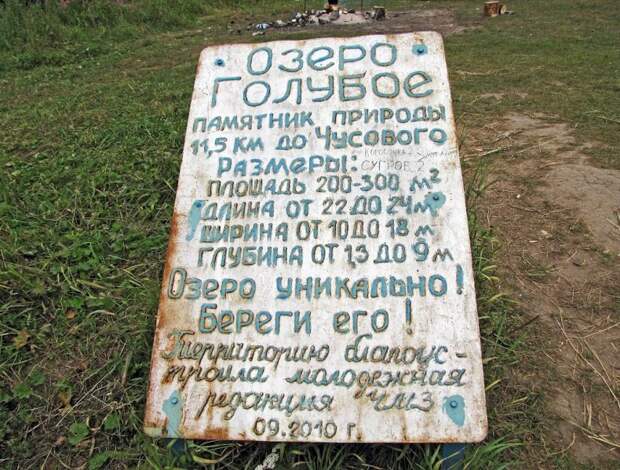 Озеро
Голубое
памятник природы
11,5 км до Чусового
Размеры:
СУГРОБ 2
площадь 200-300 м²
длина от 22 до 24 м
ширина от 10 до 18 м
глубина от 1,3 до 9 м
Озеро уникально!
Береги его!
Территорию благоус-
троила молодежная
редакция ЧМЗ
09.2010 г